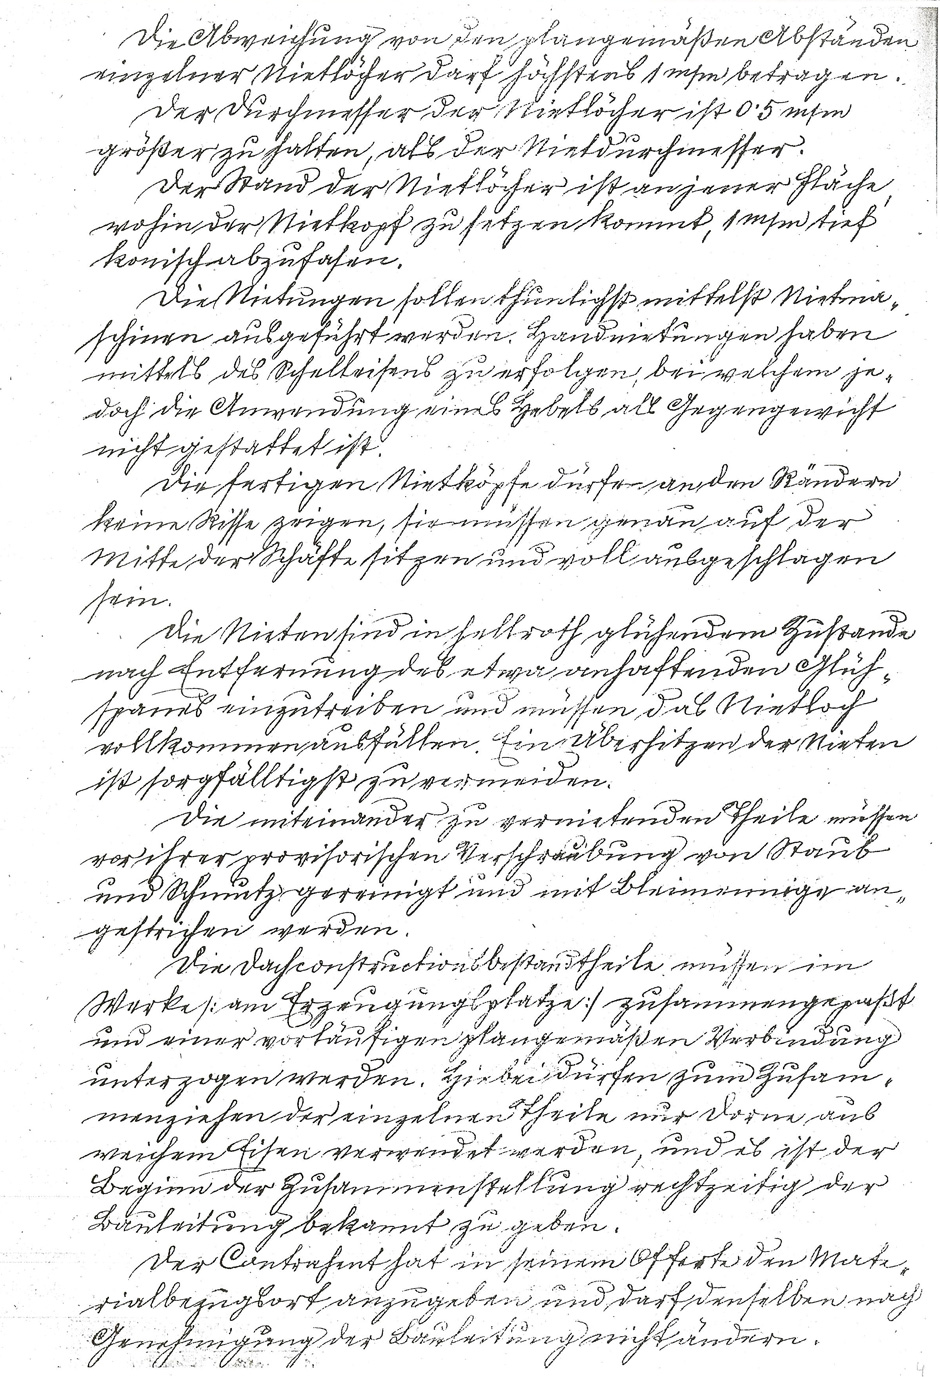 Die Abweichung von den plangemäßen Abständen
einzelner Nietlöcher darf höchstens 1 m/m betragen.
Der Durchmesser der Nietlöcher ist 0·5 m/m
größer zu halten, als der Nietdurchmesser.
Der Rand der Nietlöcher ist an jener Fläche,
wohin der Nietkopf zu setzen kommt, 1 m/m tief
konisch abzufasen.
Die Nietungen sollen thunlichst mittelst Nietma„
schinen ausgeführt werden. Handnietungen haben
mittels des Schelleisens zu erfolgen, bei welchem je„
doch die Anwendung eines Hebels als Gegengewicht
nicht gestattet ist.
Die fertigen Nietköpfe dürfen an den Rändern
keine Risse zeigen, sie müssen genau auf der
Mitte der Schäfte sitzen und voll ausgeschlagen
sein.
Die Nieten sind in hellroth glühendem Zustande
nach Entfernung des etwa anhaftenden Glüh„
spanes einzutreiben und müssen das Nietloch
vollkommen ausfüllen. Ein Überhitzen der Nieten
ist sorgfälltigst zu vermeiden.
Die miteinander zu vernietenden Theile müssen
vor ihrer provisorischen Verschraubung von Staub
und Schmutz gereinigt und mit Bleimennige an„
gestrichen werden.
Die Dachconstructionsbestandtheile müssen im
Werke /: am Erzeugungsplatze :/ zusammengepaßt
und einer vorläufigen plangemäßen Verbindung
unterzogen werden. Hiebei dürfen zum Zusam„
menziehen der einzelnen Theile nur Dorne aus
weichem Eisen verwendet werden, und es ist der
Beginn der Zusammenstellung rechtzeitig der
Bauleitung bekannt zu geben.
Der Contrahent hat in seinem Offerte den Mate„
rialbezugsort anzugeben und darf denselben nach
Genehmigung der Bauleitung nicht ändern.
4